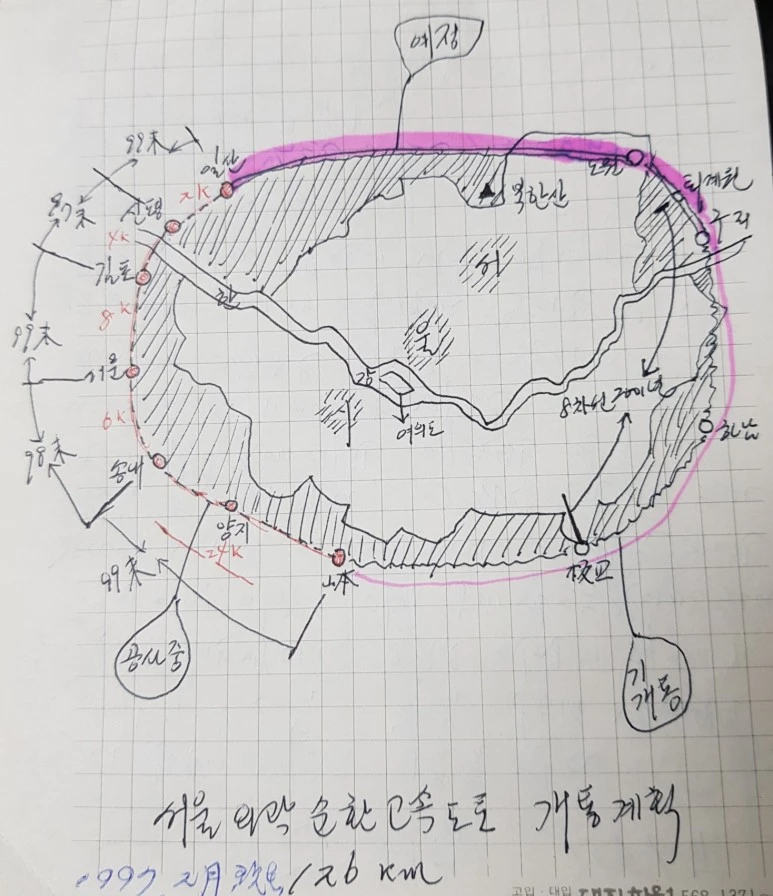 예정
99末
일산
노원
2K
퇴계원
북한산
신평
구리
97末
4K
김포
서
한
울
8K
99末
서울
강
8차선 2001년
여의도
6K
시
하남
98末
송내
양지
24K
山本
板교
99末
공사중
기개통
서울 외곽 순환 고속도로 개통계획
126 km